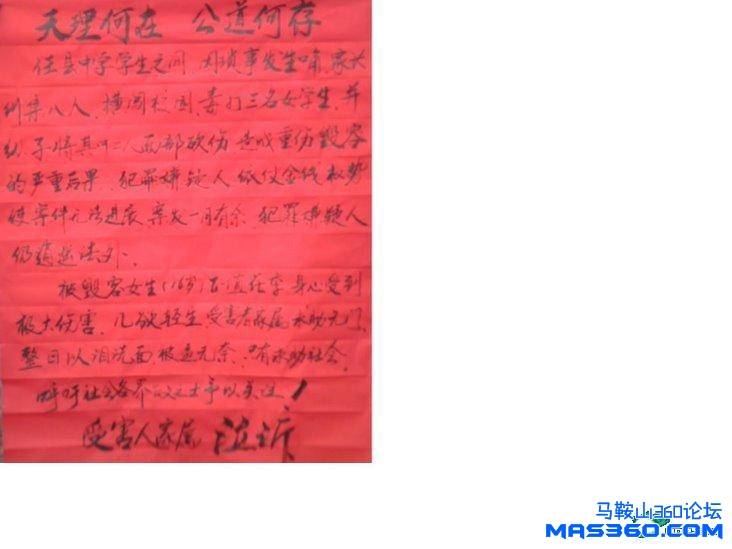 天理何在 公道何存
任县中学学生之间,因琐事发生口角,家长
纠集八人,横闯校园,毒打三名女学生,并
纵子将其中二人面部砍伤,造成重伤毁容
的严重后果,犯罪嫌疑人依仗金钱权势
使案件无法进展,案发一月有余,犯罪嫌疑人
仍逍遥法外.
被毁容女生(16岁)正值花季,身心受到
极大伤害,几欲轻生,受害者家属求助无门,
整日以泪洗面,被逼无奈,只有求助社会,
呼吁社会各界正义之士予以关注!
受害人家属 泣诉
马鞍山360论坛
MAS360.COM